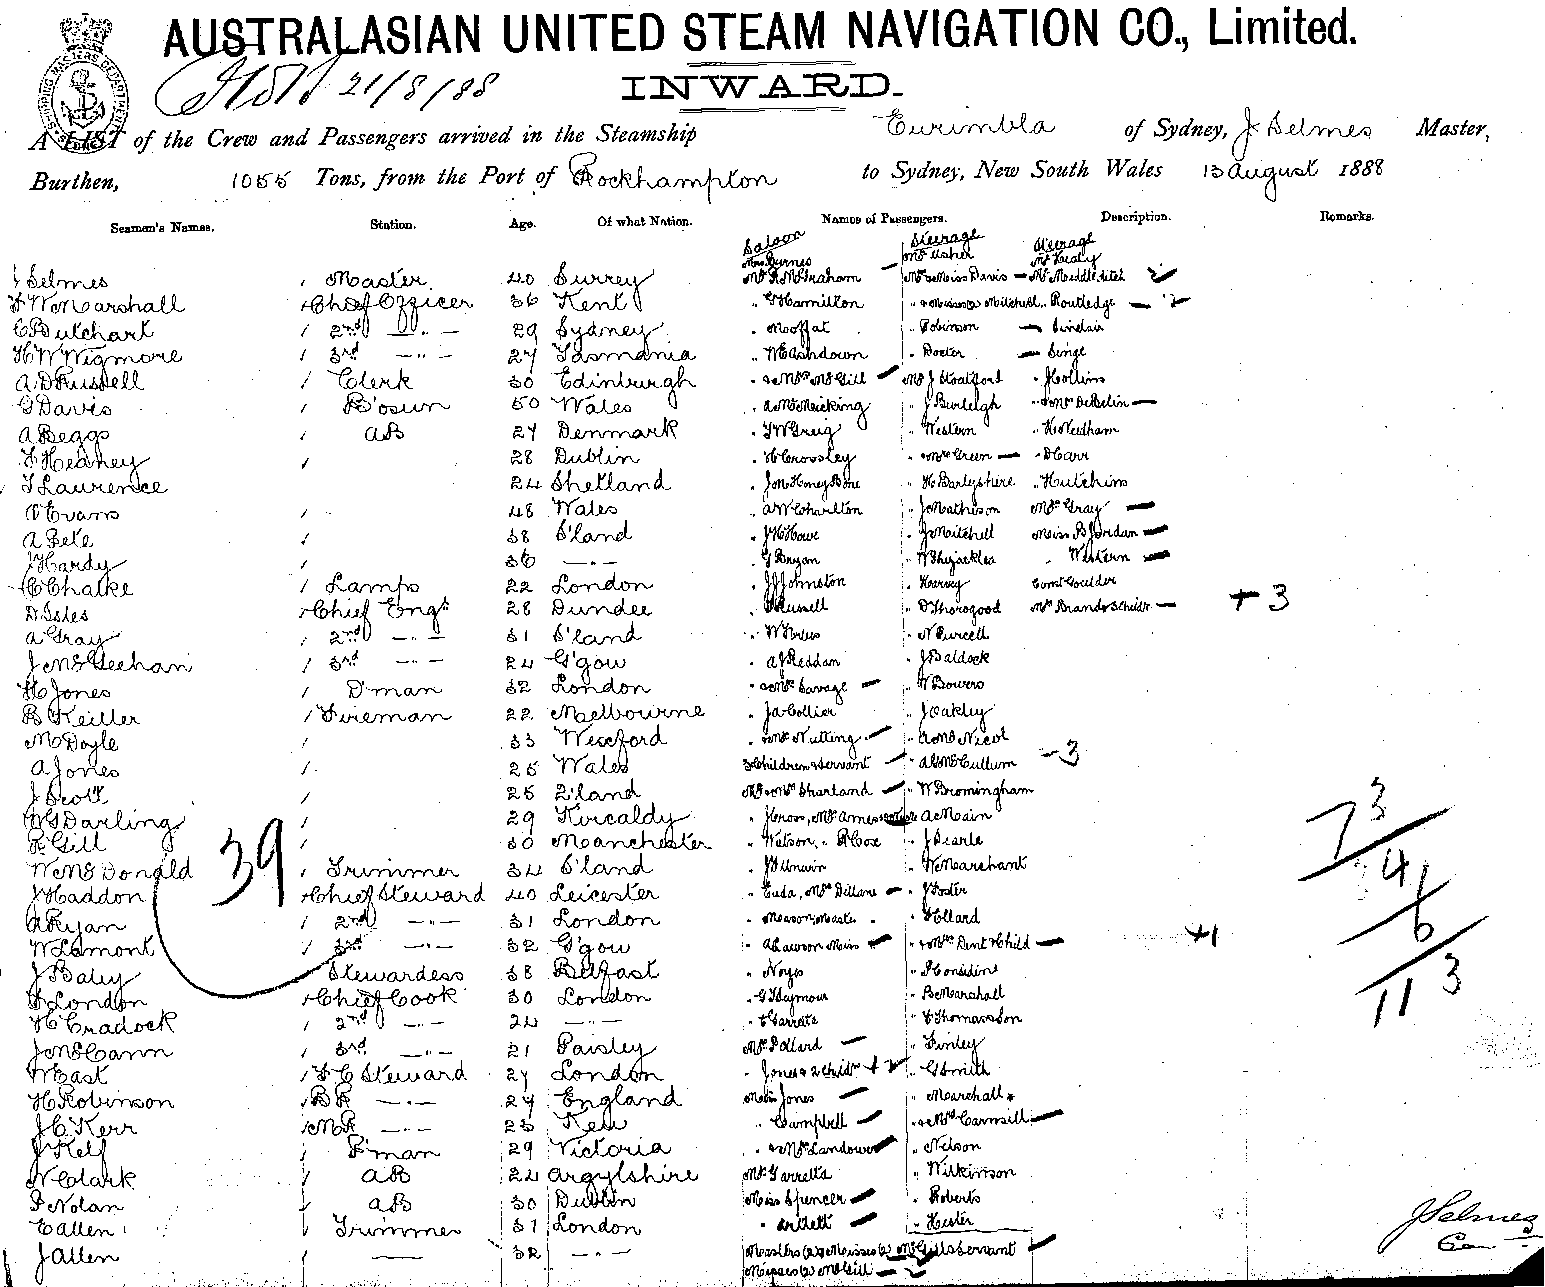 AUSTRALASIAN UNITED STEAM NAVIGATION CO., Limited.
21/8/88 INWARD.
A LIST of the Crew and Passengers arrived in the Steamship Eurimbla of Sydney, J Selmes Master,
Burthen, 1055 Tons, from the Port of Rockhampton to Sydney, New South Wales 13 August 1888
Seamen's Names. Station. Age. Of what Nation. Names of Passengers. Description. Remarks.
Saloon Steerage Steerage
Mrs Byrnes Mr Usher Mr Healy
J Selmes Master 40 Surrey Mr R McGraham Mr & Miss Davis Mr Meddleditch
F W Marshall Chief Officer 36 Kent " G Hamilton " & Misses (2) Mitchell " Routledge
C Butchart 2nd —"— 29 Sydney " Moffat " Robinson Sinclair
H W Wigmore 3rd —"— 27 Tasmania " W Ashdown " Docter Singe
A D Russell Clerk 30 Edinburgh " & Mrs McGill Mr J Stoatford " J Collins
G Davis B'osun 50 Wales " A McMeicking " J Burleigh " & Mrs
A Beggs AB 27 Denmark " J W Greig " Western " H Needham
F Heaney 28 Dublin " H Crossley " & Mrs Green " D Carr
T Laurence 24 Shetland " Jno Honey Bone " H Darbyshire " Hutchins
Evans 48 Wales " A W Charlton " J Mathison Mrs Gray
A Pete 38 S'land " J H Howe " J Mitchell Miss B Jordan
J Hardy 36 —"— " G Bryan " W " Western
C Chalke Lamps 22 London " J J Johnston " Harvey Const Goulder
D Isles Chief Engr 28 Dundee " Russell " D Thorogood Mrs Brand & Childn + 3
A Gray 2nd —"— 31 S'land " W " N Purcell
J McGeehan 3rd —"— 24 G'gow " A J Reddan " J Baldock
H Jones D'man 32 London " & Mrs Savage " W Bowers
B Keiller Fireman 22 Melbourne " J A Collier " J Oakley
M Doyle 33 Wexford " & Mrs Nutting " A McNicol
A Jones 25 Wales 3 Children & Servant " A G McCullum - 3
J Scott 25 Z'land Mr & Mrs Sharland " W Bromingham
W G Darling 29 Kircaldy " J Cross, Mrs Ames " A Main
R Gill 30 Manchester " Watson, " R Cox " J Searle
W McDonald Trimmer 34 S'land " J " W Marchant
J Haddon Chief Steward 40 Leicester " Euda, Mrs Dillane " J Foster
A Ryan 2nd —"— 31 London " Meason, Master " " Hollard
W Lamont 3rd —"— 32 G'gow " A Lawson Miss " & Mrs Dent & Child +1
J Baly Stewardess 38 Belfast " Noyes " P Considine
F London Chief Cook 30 London " G Seymour " B Marshall
H Cradock 2nd —"— 24 —"— " Garrett " E Thomasson
J McCann 3rd —"— 21 Paisley Mrs Pollard " Finley
W East F C Steward 27 London " Jones & 2 Childn + 2 " G Smith
H Robinson BR —"— 27 England Miss Jones " Marshall
J C Kerr MR —"— 23 Kew " Campbell " & Mrs Carmsill
J Kelf P'man 29 Victoria " & Mrs Landower " Nelson
N Clark AB 22 Argylshire Mr Garretts " Wilkinson
P Nolan AB 30 Dublin Miss Spencer " Roberts
E Allen Trimmer 31 London " Hester
J Allen —— 32 —"— Masters (2) & Misses (2) McGill & Servant
Misses (2) McGill
39
73
4
6
113
J Selmes